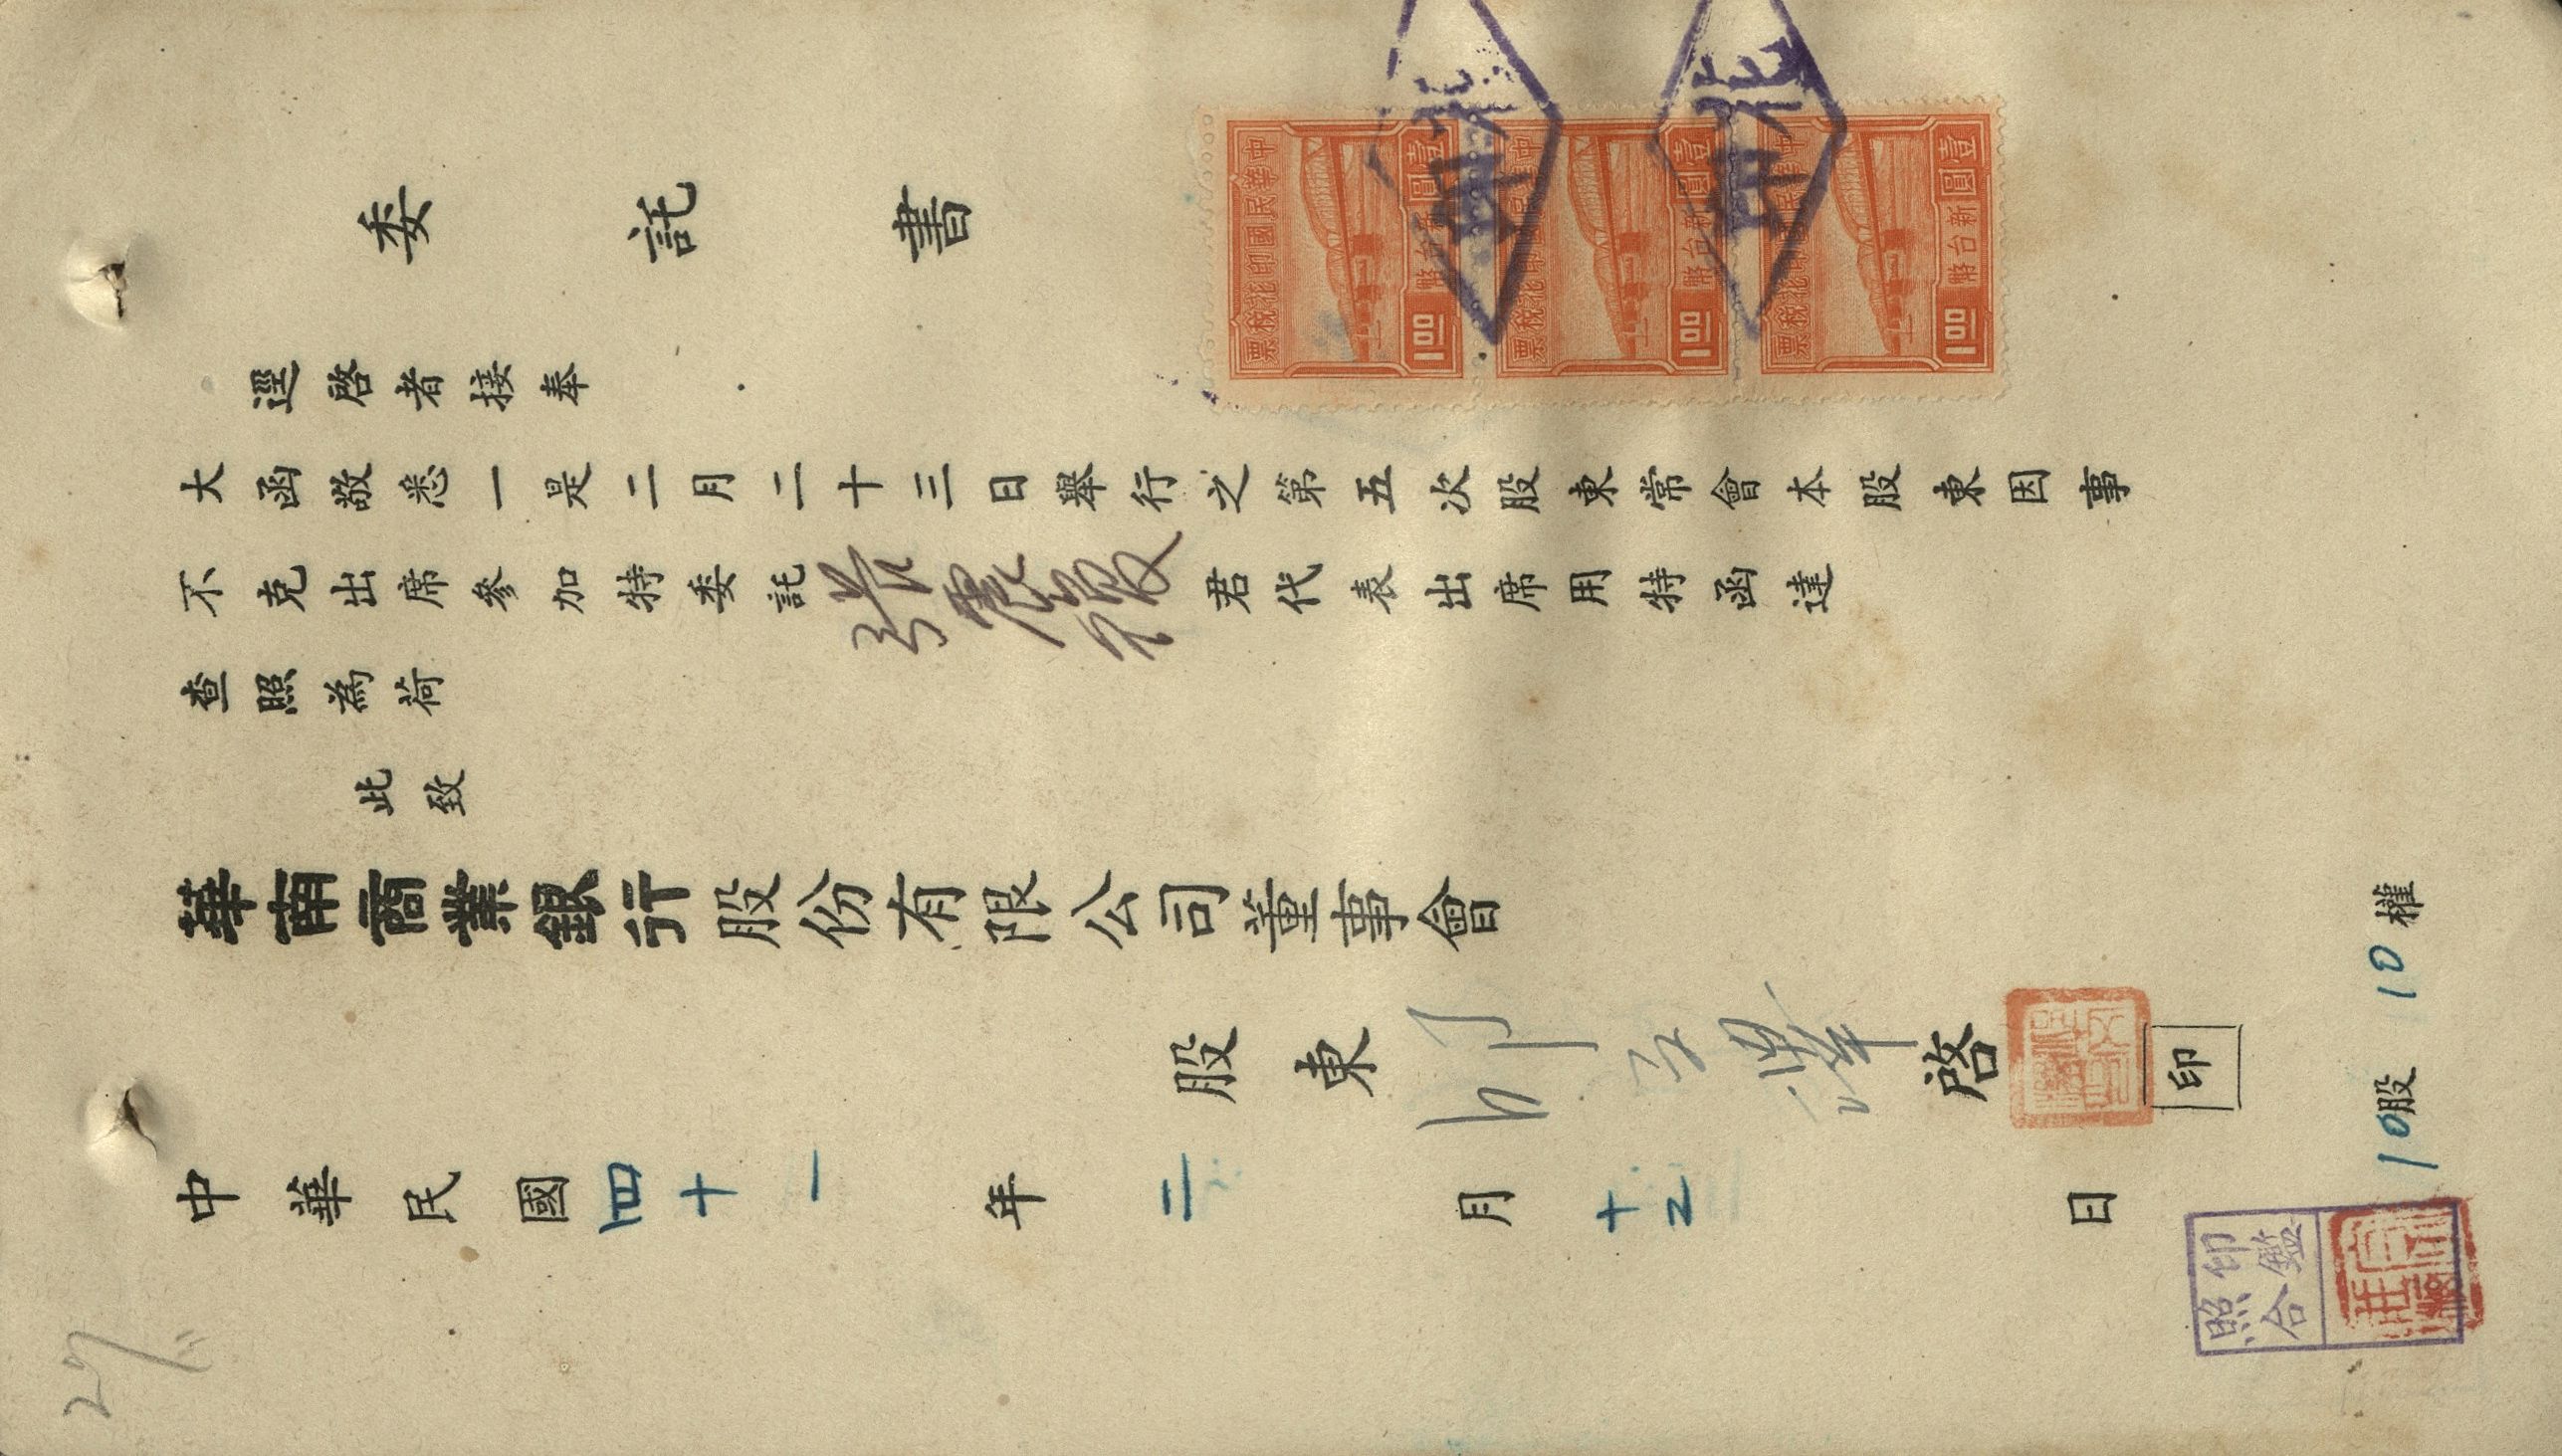 委託書
逕啓者接奉
大函敬悉一是二月二十三日舉行之第五次股東常會本股東因事
不克出席參加特委託張震君代表出席用特函達
查照為荷
此致
華南商業銀行股份有限公司董事會
股東啓
印
中華民國四十一年二月十五日
10股 10權
中華民國印花稅票
壹圓
新台幣
1.00
中華民國印花稅票
壹圓
新台幣
1.00
中華民國印花稅票
壹圓
新台幣
1.00
印鑑
照合